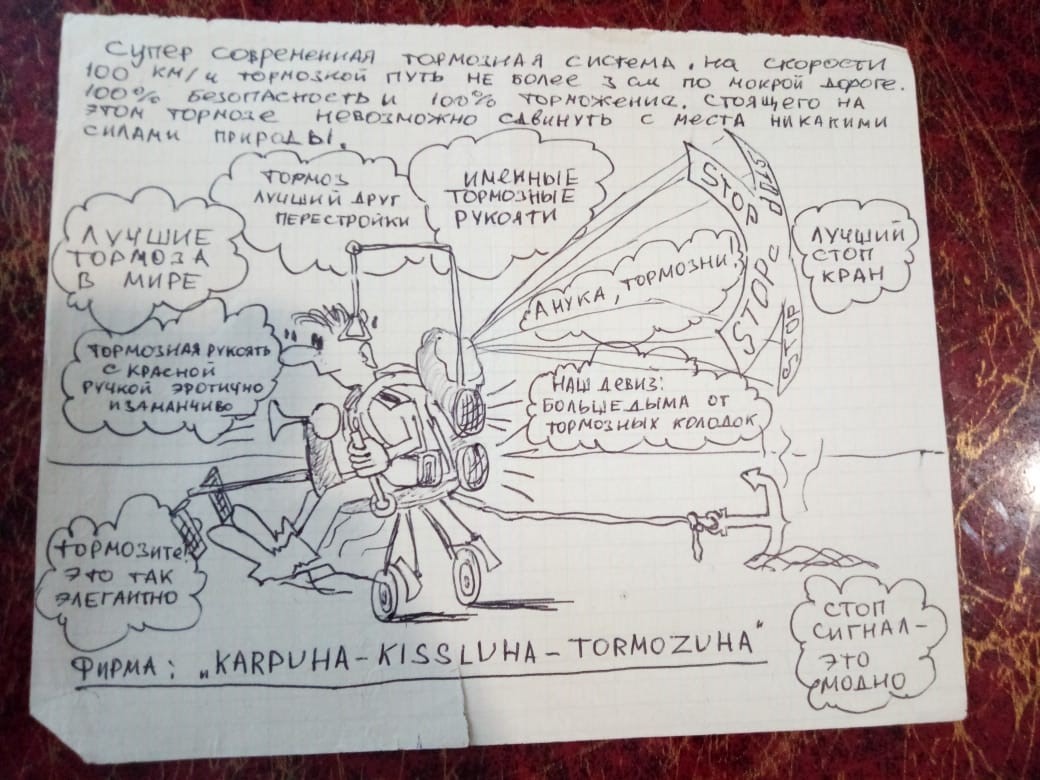 СУПЕР СОВРЕМЕННАЯ ТОРМОЗНАЯ СИСТЕМА. НА СКОРОСТИ
100 КМ/Ч ТОРМОЗНОЙ ПУТЬ НЕ БОЛЕЕ 3 СМ ПО МОКРОЙ ДОРОГЕ.
100% БЕЗОПАСНОСТЬ И 100% ТОРМОЖЕНИЯ. СТОЯЩЕГО НА
ЭТОМ ТОРМОЗЕ НЕВОЗМОЖНО СДВИНУТЬ С МЕСТА НИКАКИМИ
СИЛАМИ ПРИРОДЫ.
ТОРМОЗ
ЛУЧШИЙ ДРУГ
ПЕРЕСТРОЙКИ
ИМЕННЫЕ
ТОРМОЗНЫЕ
РУКОЯТИ
STOP
STOP
STOPS
STOP
ЛУЧШИЕ
ТОРМОЗА
В МИРЕ
ЛУЧШИЙ
СТОП
КРАН
А НУКА, ТОРМОЗНИ.
ТОРМОЗНАЯ РУКОЯТЬ
С КРАСНОЙ
РУЧКОЙ ЭРОТИЧНО
И ЗАМАНЧИВО
НАШ ДЕВИЗ:
БОЛЬШЕ ДЫМА ОТ
ТОРМОЗНЫХ КОЛОДОК
ТОРМОЗИТЕ!
ЭТО ТАК
ЭЛЕГАНТНО
СТОП
СИГНАЛ-
ЭТО
МОДНО
ФИРМА: „KARPUHA-KISSLUHA-TORMOZUHA"